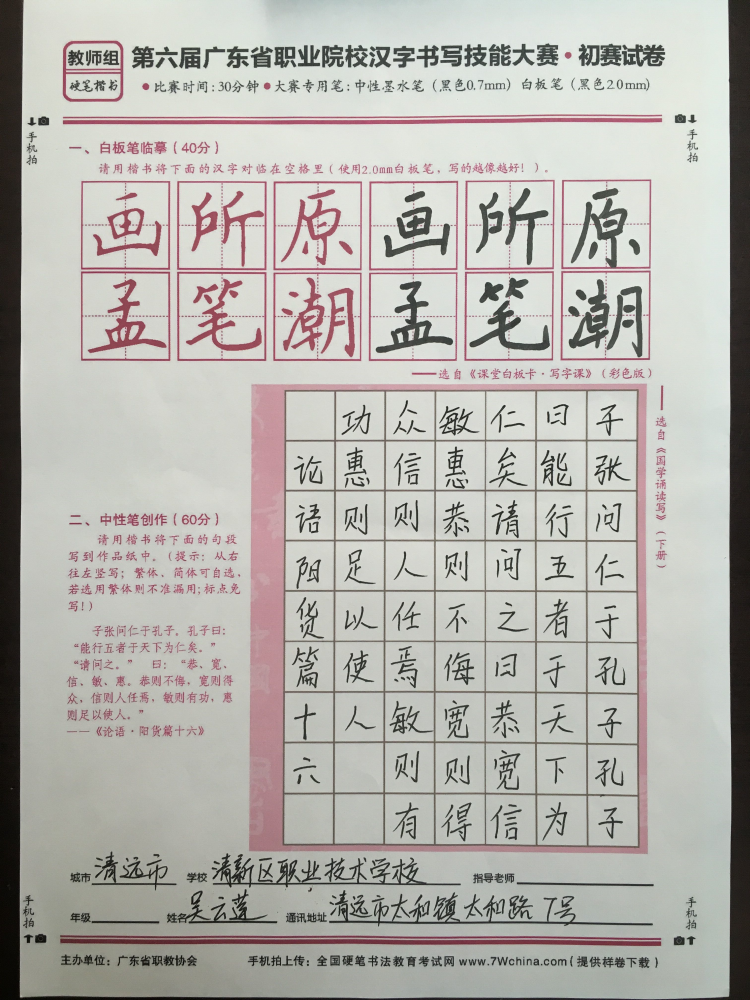 教师组
硬笔楷书
第六届广东省职业院校汉字书写技能大赛·初赛试卷
●比赛时间:30分钟●大赛专用笔:中性墨水笔（黑色0.7mm）白板笔（黑色2.0mm）
手机拍
手机拍
一、白板笔临摹(40分)
请用楷书将下面的汉字对临在空格里（使用2.0mm白板笔，写的越像越好！）。
画所原画所原
孟笔潮孟笔潮
——选自《课堂白板卡·写字课》（彩色版）
——选自《国学诵读写》（下册）
二、中性笔创作(60分)
请用楷书将下面的句段
写到作品纸中。(提示：从右
往左竖写；繁体、简体可自选，
若选用繁体则不准漏用;标点免
写!)
子张问仁于孔子。孔子曰:
“能行五者于天下为仁矣。”
“请问之。” 曰：“恭、宽、
信、敏、惠。恭则不侮，宽则得
众，信则人任焉，敏则有功，惠
则足以使人。”
——《论语·阳货篇十六》
子张问仁于孔子孔子
曰能行五者于天下为
仁矣请问之曰恭宽信
敏惠恭则不侮宽则得
众信则人任焉敏则有
功惠则足以使人
论语阳货篇十六
城市 清远市 学校 清新区职业技术学校 指导老师
年级 姓名 吴云莲 通讯地址 清远市太和镇太和路7号
手机拍
手机拍
主办单位：广东省职教协会 手机拍上传：全国硬笔书法教育考试网 www.7Wchina.com(提供样卷下载)